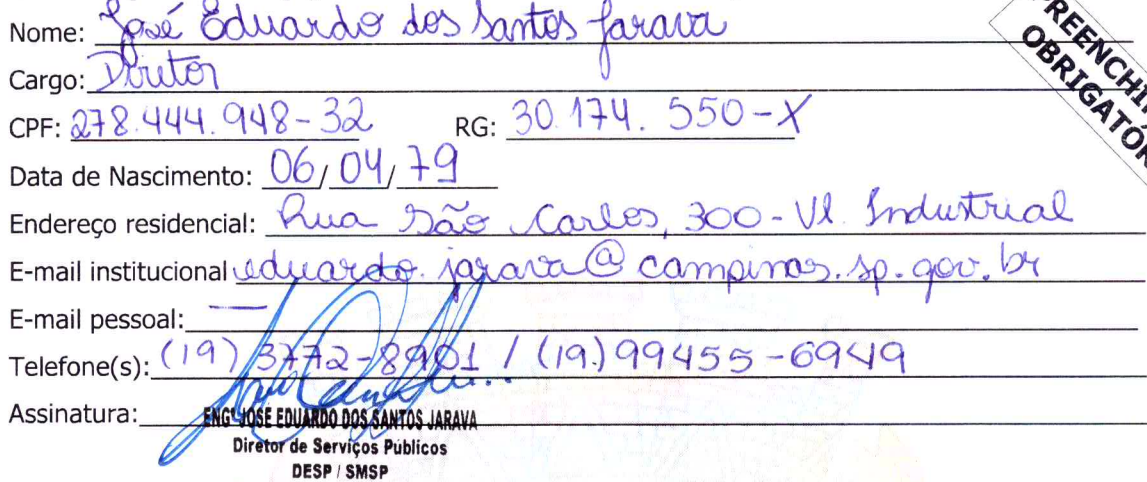 Nome: José Eduardo dos Santos Jarava
PREENCHI
OBRIGATÓR
Cargo: Diretor
CPF: 278.444.948-32 RG: 30.174.550-X
Data de Nascimento: 06/04/79
Endereço residencial: Rua São Carlos, 300 - Vl. Industrial
E-mail institucional eduardo.jarava@campinas.sp.gov.br
E-mail pessoal: —
Telefone(s): (19) 3772-8901 / (19.) 99455-6949
Assinatura:
ENGº JOSÉ EDUARDO DOS SANTOS JARAVA
Diretor de Serviços Públicos
DESP / SMSP